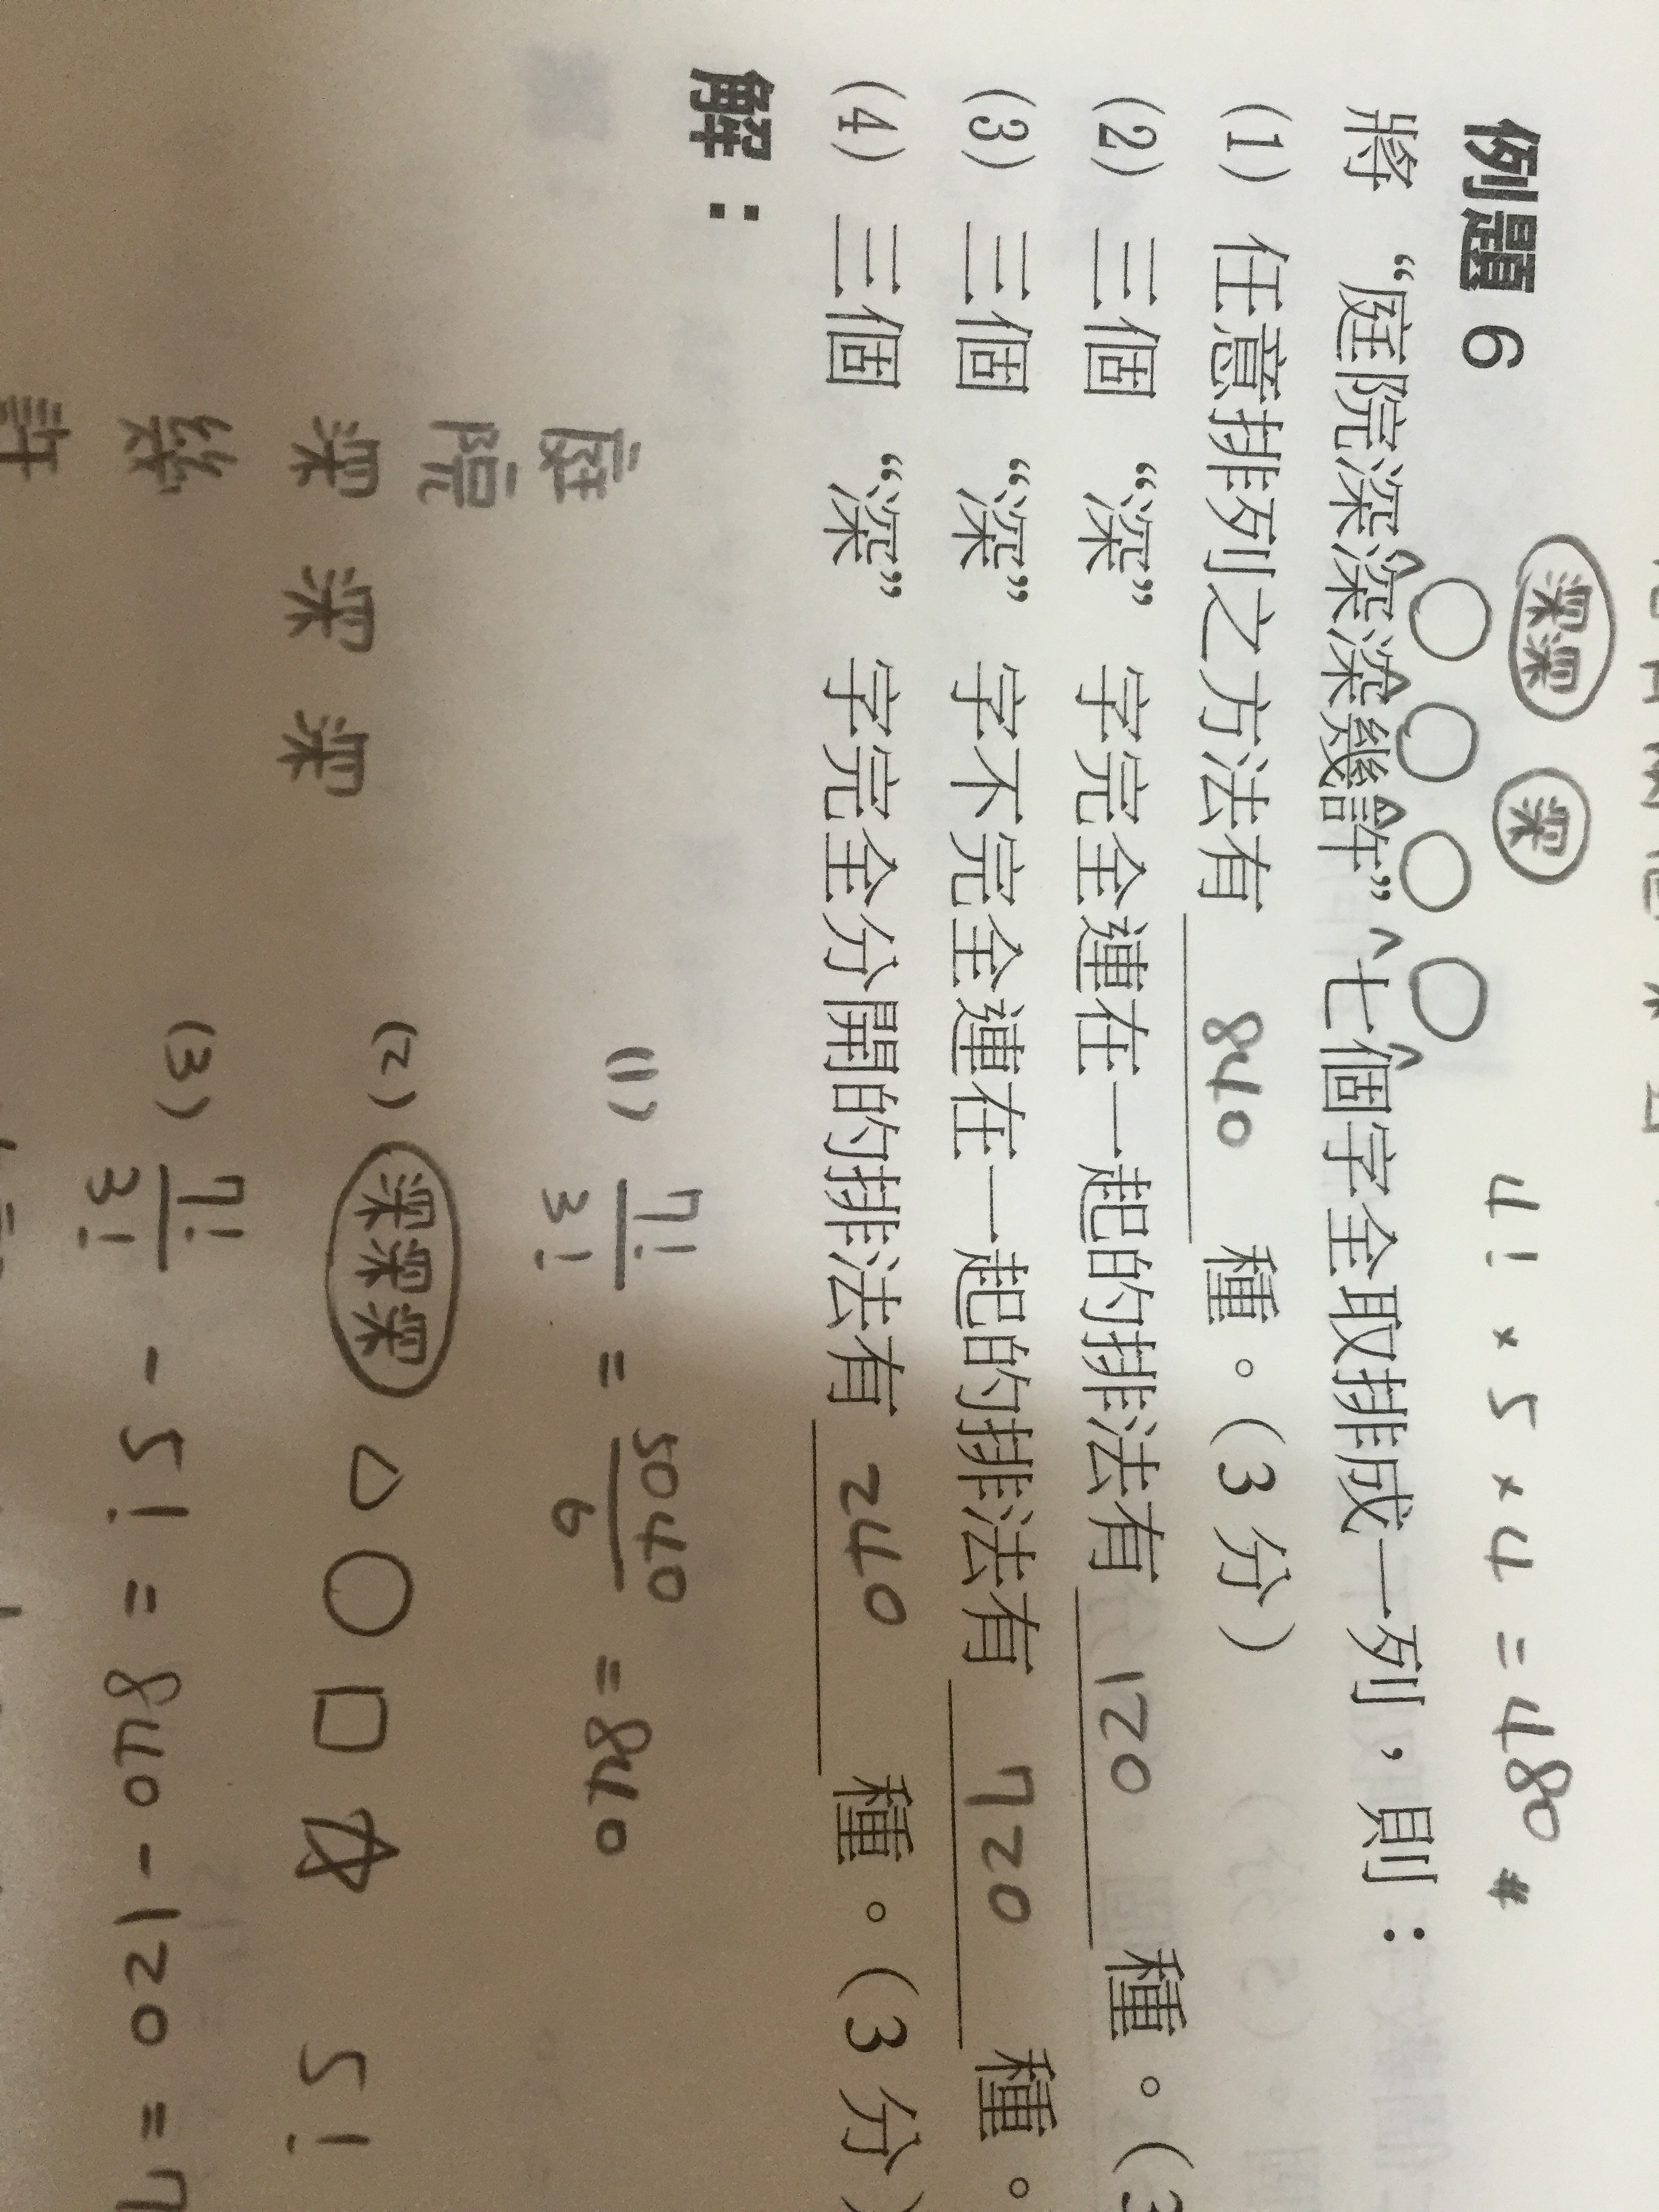 4! × 5 × 4 = 480 #
深深 深
例題 6
將“庭院深深深幾許”七個字全取排成一列，則：
(1) 任意排列之方法有 840 種。(3分)
(2) 三個“深”字完全連在一起的排法有 120 種。(3
(3) 三個“深”字不完全連在一起的排法有 720 種。
(4) 三個“深”字完全分開的排法有 240 種。(3分)
解：
庭
院
深 深 深
幾
許
(1) 7!/3! = 5040/6 = 840
(2) 深深深 △ ○ □ ☆ 5!
(3) 7!/3! - 5! = 840 - 120 = 7